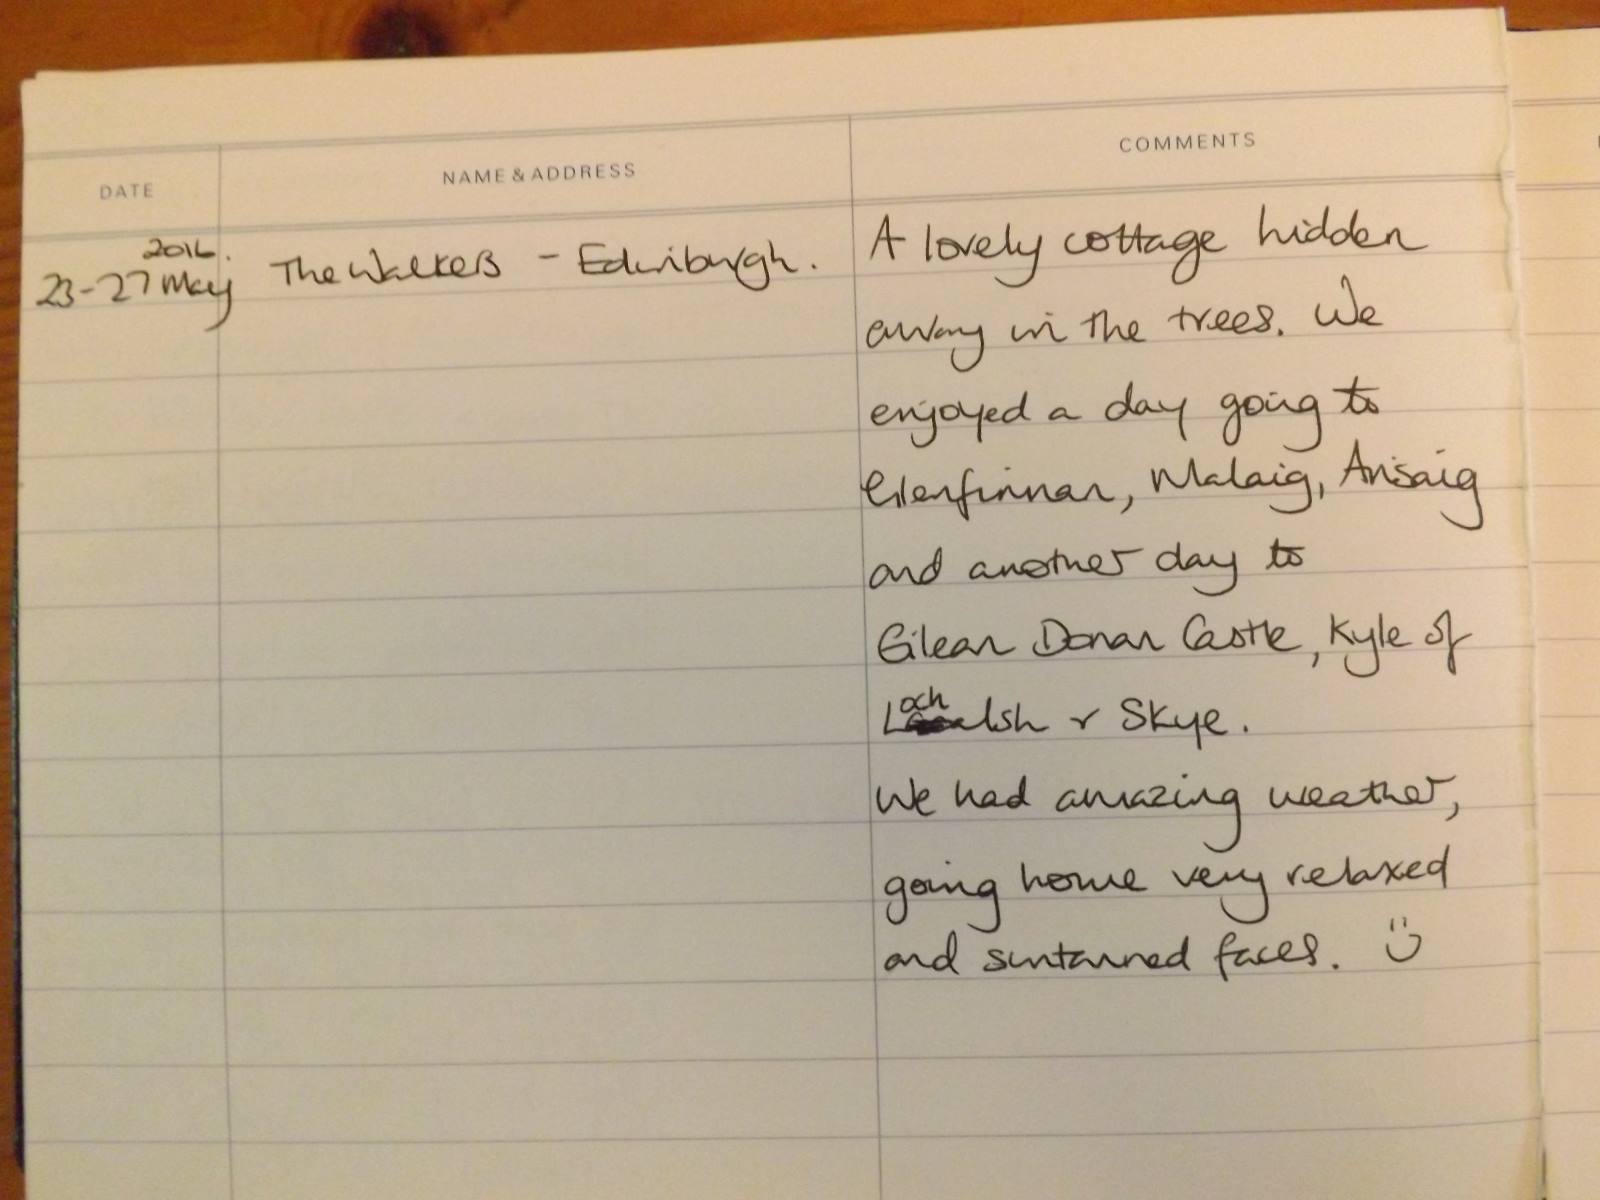 DATE NAME & ADDRESS COMMENTS
2016.
23-27 May The Walkers - Edinburgh.
A lovely cottage hidden
away in the trees. We
enjoyed a day going to
Glenfinnan, Malaig, Arisaig
and another day to
Eilean Donan Castle, Kyle of
Lochalsh & Skye.
We had amazing weather,
going home very relaxed
and suntanned faces. :)